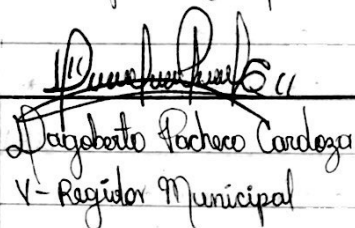 Dagoberto Pacheco Cardoza
V- Regidor Municipal